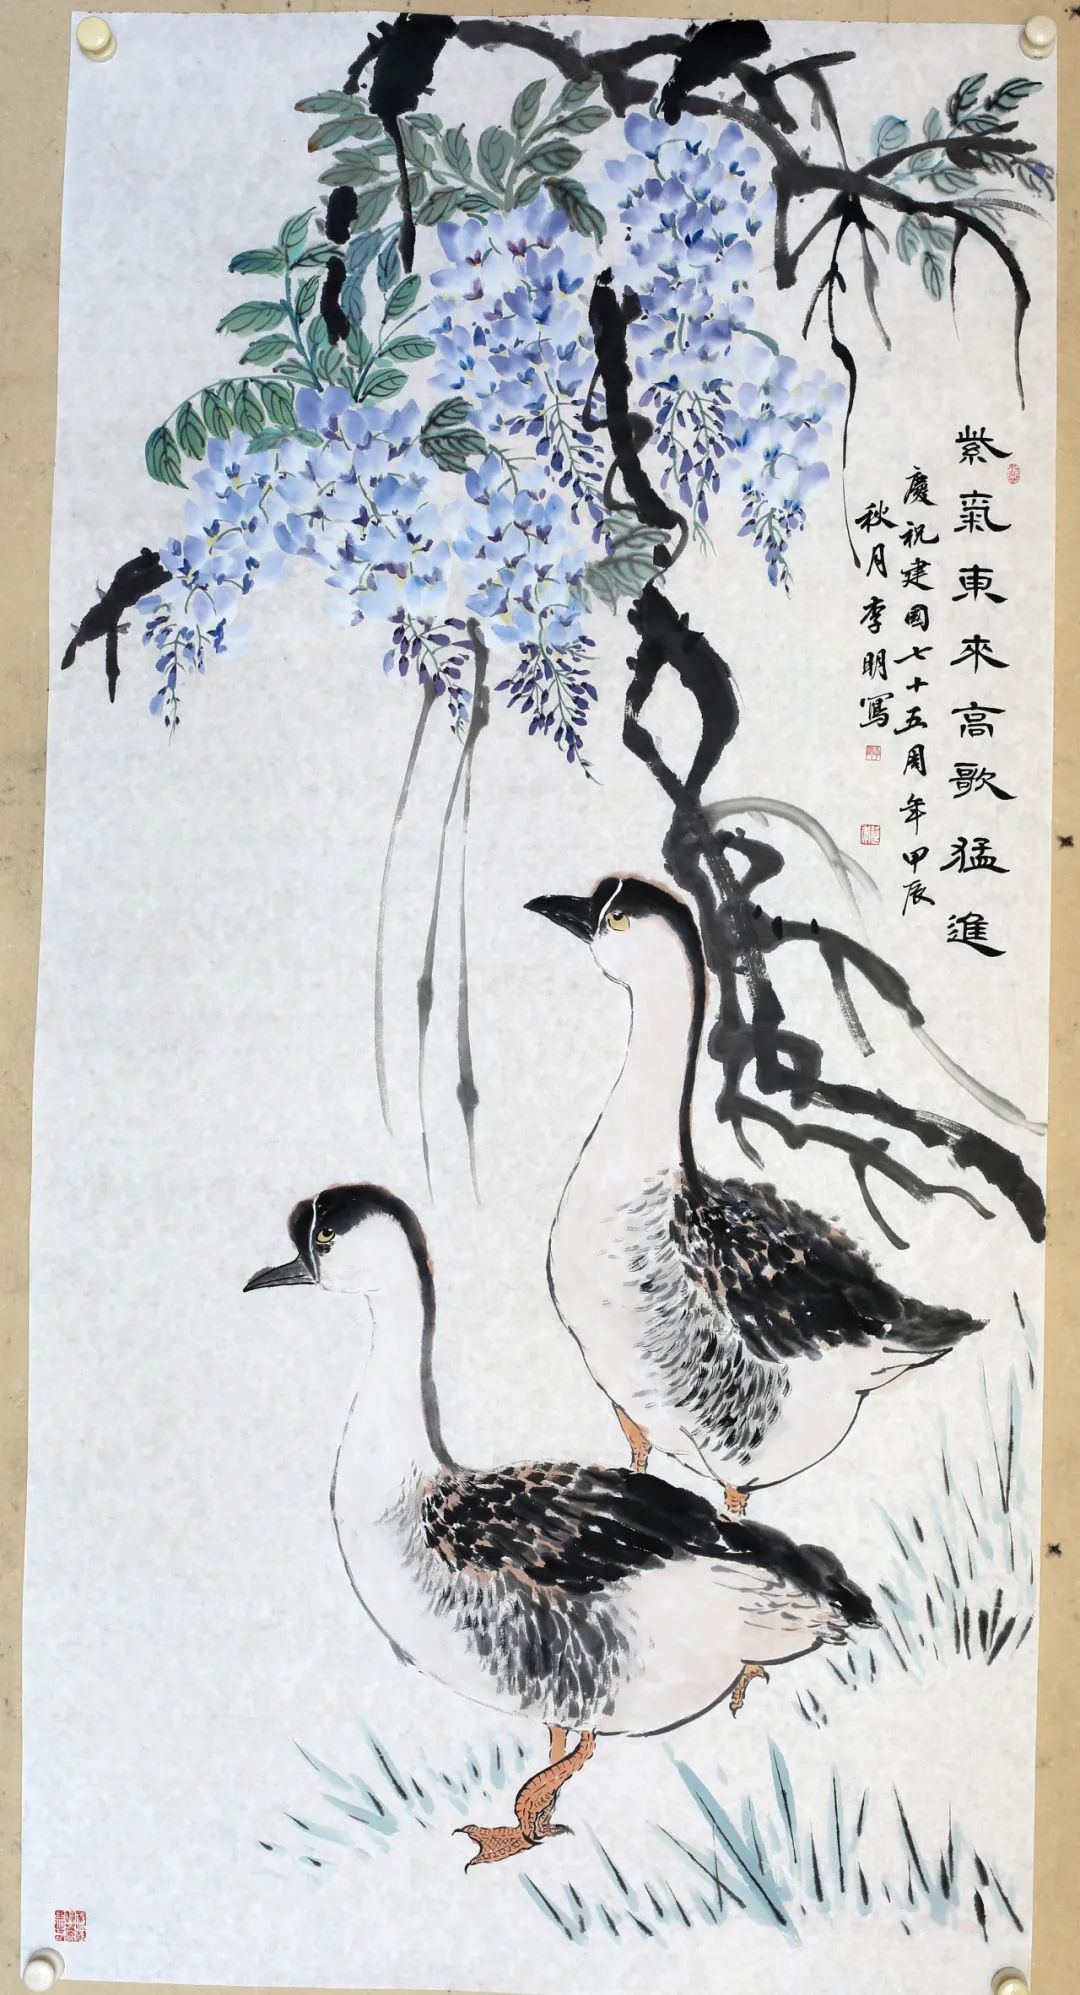 紫氣東來高歌猛進
慶祝建国七十五周年甲辰
秋月李明寫